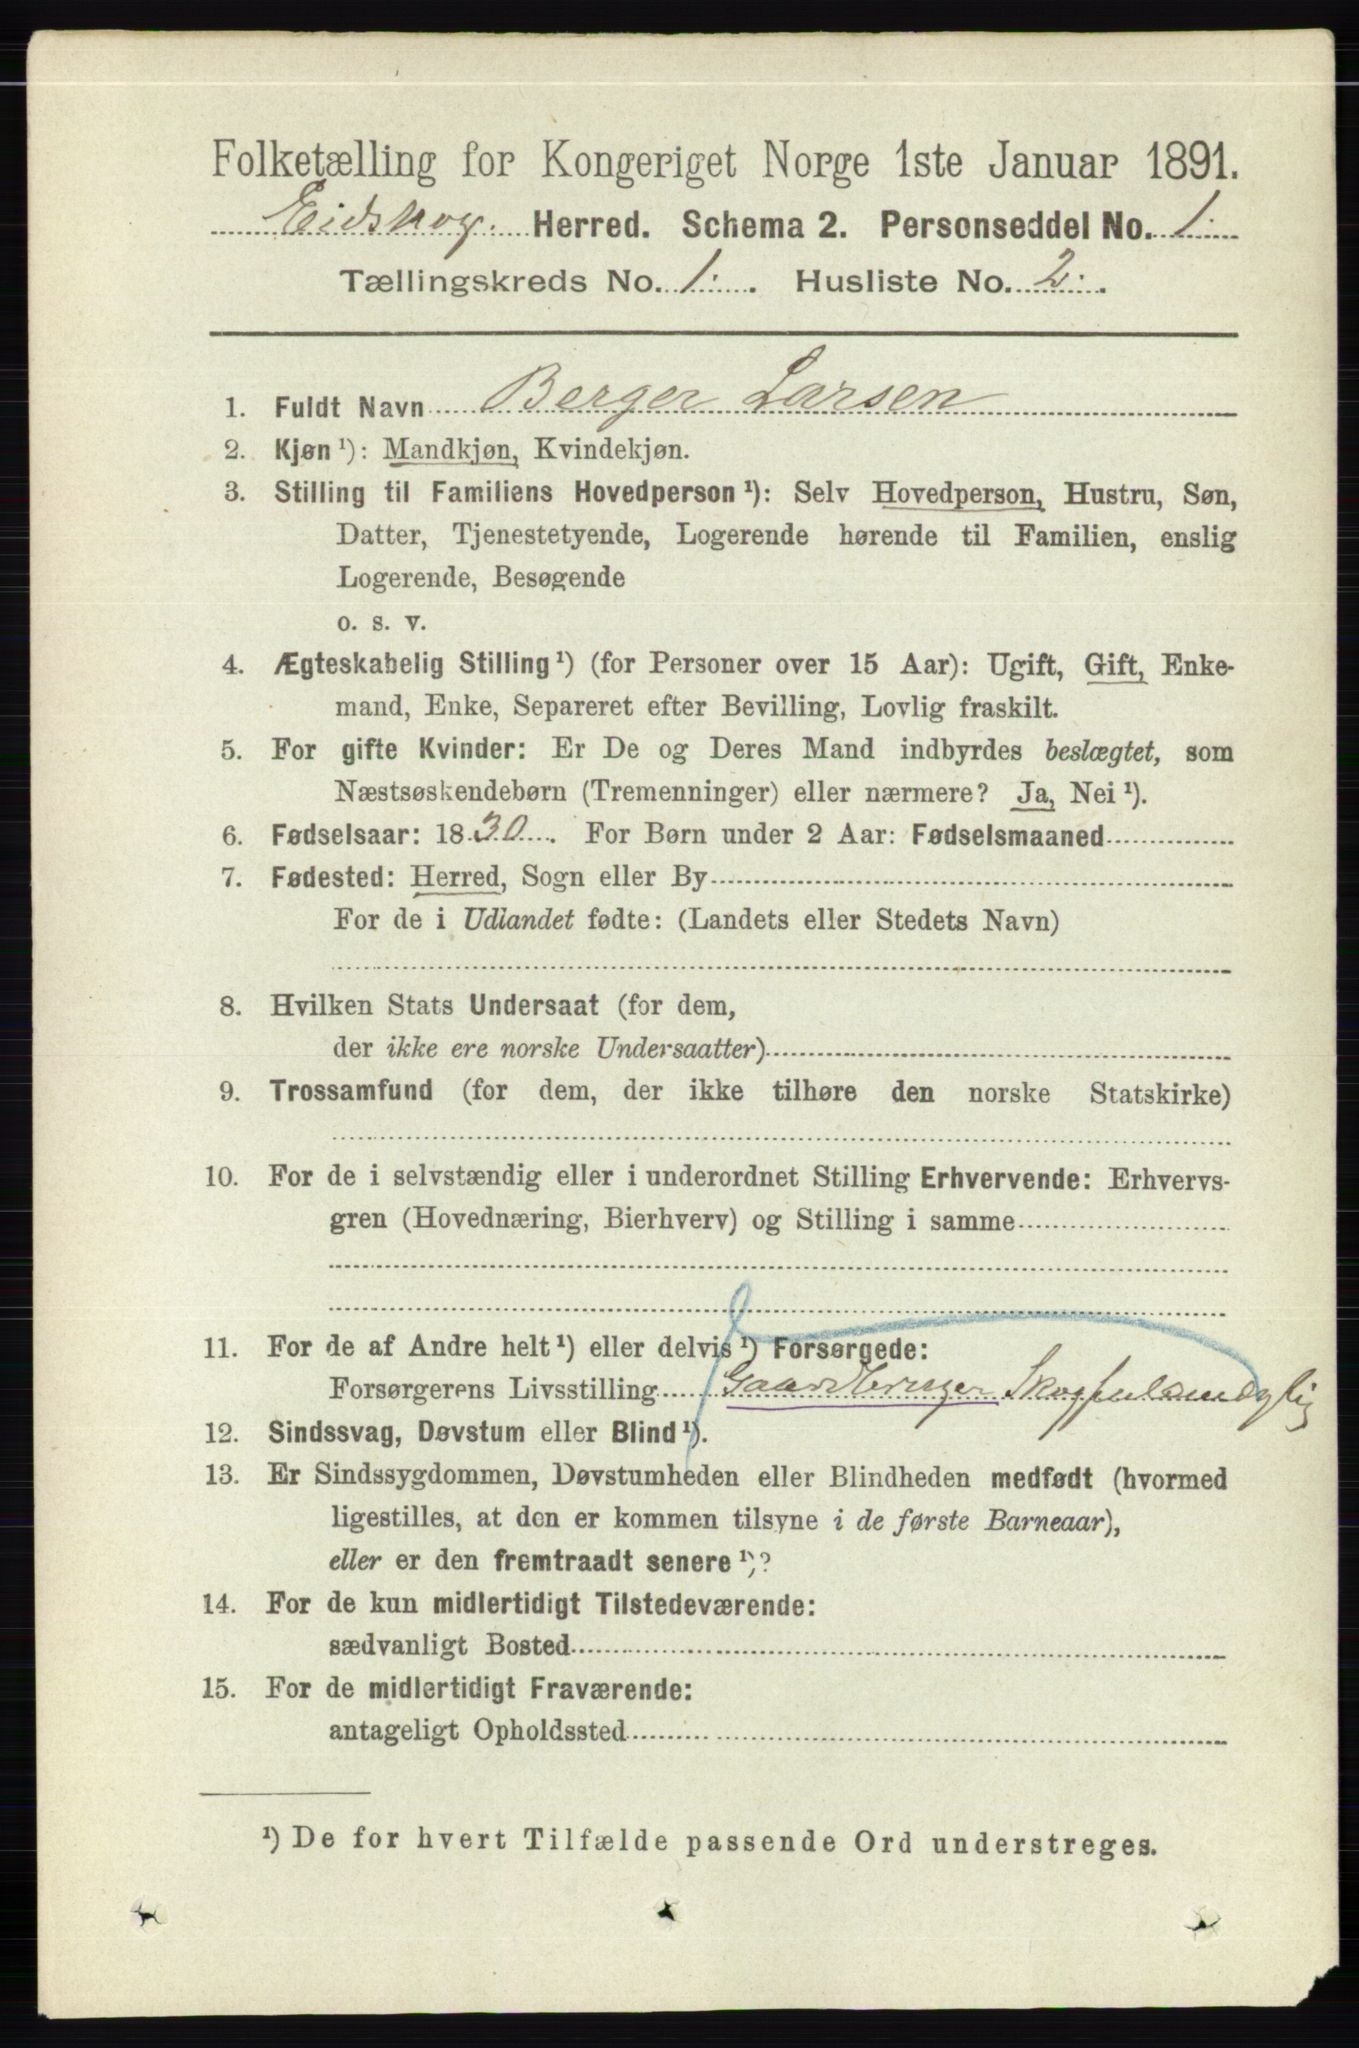 Folketælling for Kongeriget Norge 1ste Januar 1891.
Eidskog. Herred. Schema 2. Personseddel No. 1.
Tællingskreds No. 1. Husliste No. 2.
1. Fuldt Navn Berger Larsen
2. Kjøn ¹): Mandkjøn, Kvindekjøn.
3. Stilling til Familiens Hovedperson ¹): Selv Hovedperson, Hustru, Søn,
Datter, Tjenestetyende, Logerende hørende til Familien, enslig
Logerende, Besøgende
o. s. v.
4. Ægteskabelig Stilling ¹) (for Personer over 15 Aar): Ugift, Gift, Enke-
mand, Enke, Separeret efter Bevilling, Lovlig fraskilt.
5. For gifte Kvinder: Er De og Deres Mand indbyrdes beslægtet, som
Næstsøskendebørn (Tremenninger) eller nærmere? Ja, Nei ¹).
6. Fødselsaar: 1830. For Børn under 2 Aar: Fødselsmaaned
7. Fødested: Herred, Sogn eller By
For de i Udlandet fødte: (Landets eller Stedets Navn)
8. Hvilken Stats Undersaat (for dem,
der ikke ere norske Undersaatter)
9. Trossamfund (for dem, der ikke tilhøre den norske Statskirke)
10. For de i selvstændig eller i underordnet Stilling Erhvervende: Erhvervs-
gren (Hovednæring, Bierhverv) og Stilling i samme
11. For de af Andre helt ¹) eller delvis ¹) Forsørgede:
Forsørgerens Livsstilling Gaardbruger
12. Sindssvag, Døvstum eller Blind ¹).
13. Er Sindssygdommen, Døvstumheden eller Blindheden medfødt (hvormed
ligestilles, at den er kommen tilsyne i de første Barneaar),
eller er den fremtraadt senere ¹)?
14. For de kun midlertidigt Tilstedeværende:
sædvanligt Bosted
15. For de midlertidigt Fraværende:
antageligt Opholdssted
¹) De for hvert Tilfælde passende Ord understreges.